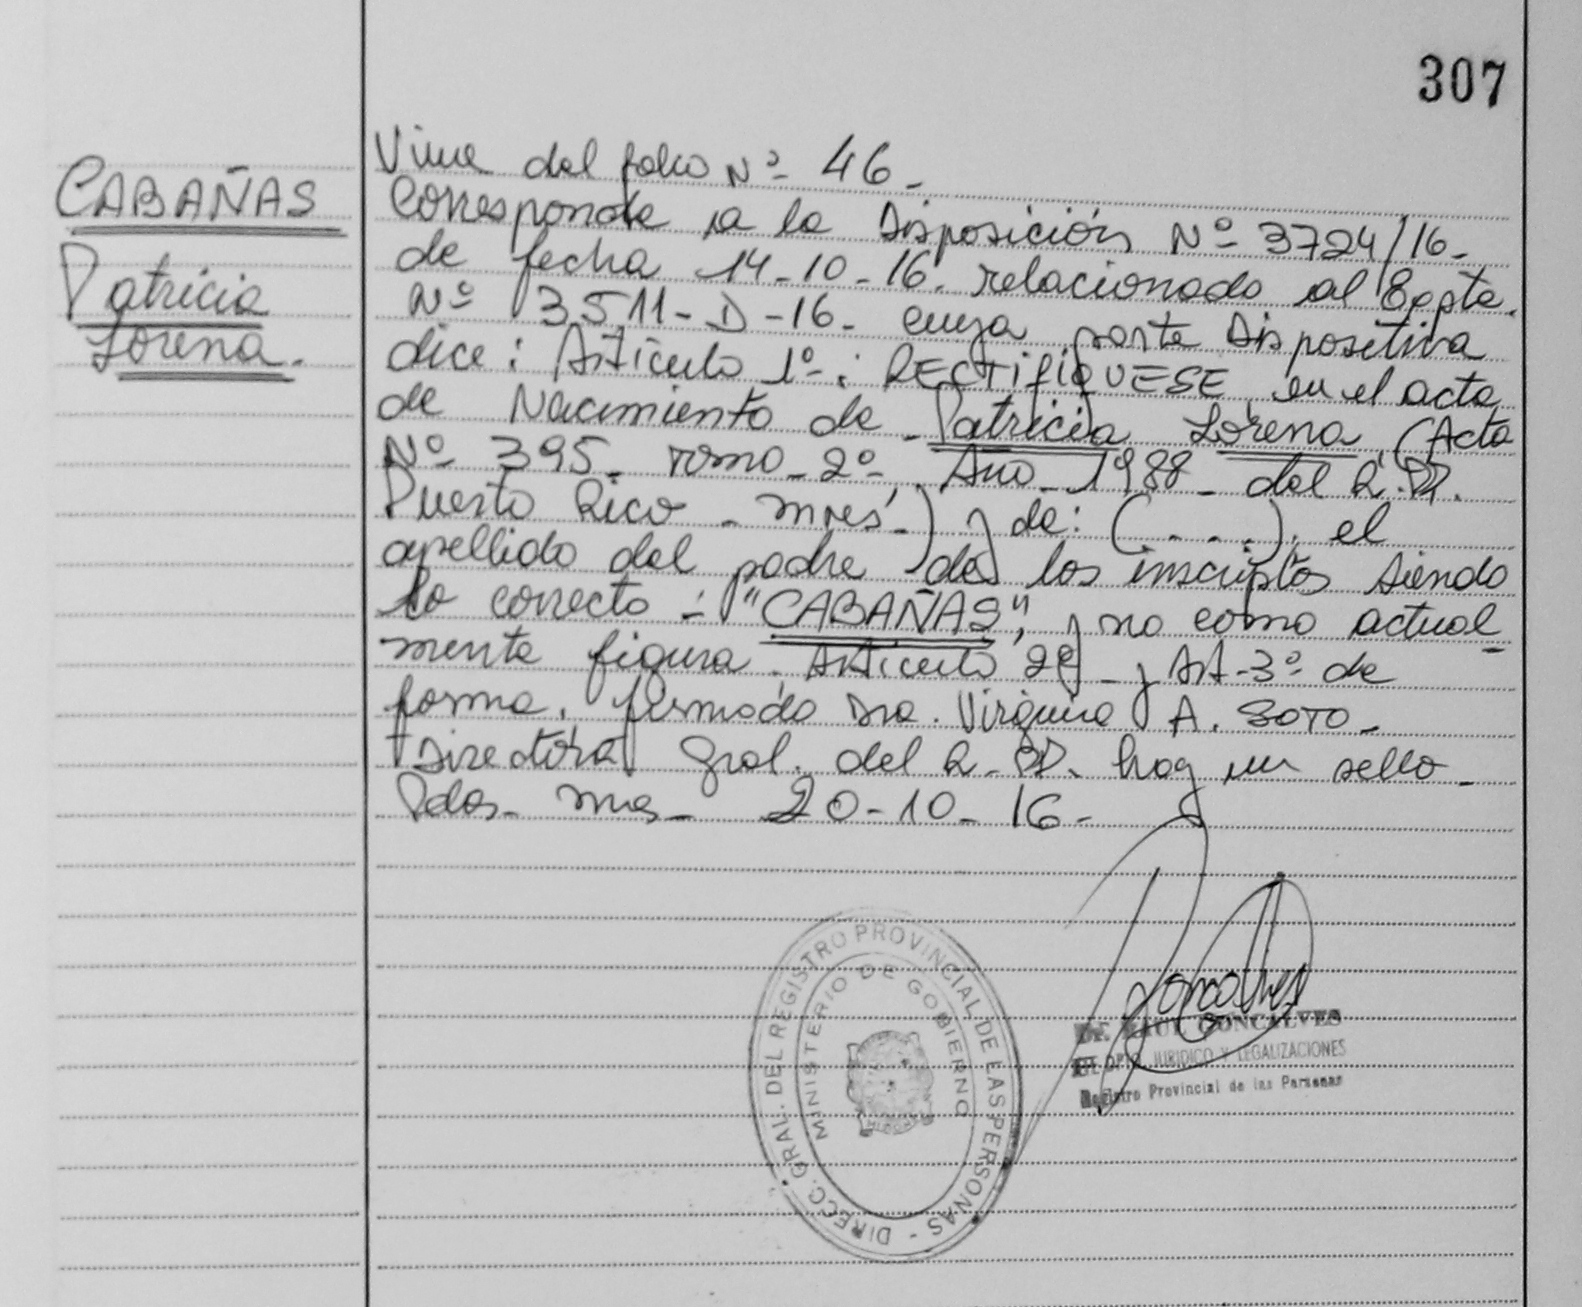 307
CABAÑAS
Patricia
Lorena.
Viene del folio Nº 46.
Corresponde a la Disposición Nº 3724/16.
de fecha 14-10-16. relacionado al Expte.
Nº 3511-D-16- cuya parte Dispositiva
dice: Artículo 1º: RECTIFIQUESE en el acta
de Nacimiento de Patricia Lorena (Acta
Nº 395 Tomo 2º Año 1988 del R.PP.
Puerto Rico - Mnes.) y de: (....). el
apellido del padre de los inscriptos siendo
lo correcto: "CABAÑAS", y no como actual-
mente figura. Artículo 2º y Art-3º de
forma. firmado Dra. Virginia A. SOTO-
Directora Gral. del R.PP. hay un sello-
Pdas- Mes- 20-10-16-
DIRECC. GRAL. DEL REGISTRO PROVINCIAL DE LAS PERSONAS -
MINISTERIO DE GOBIERNO
MISIONES
Dr. RAUL GONCALVES
DPTO. JURIDICO Y LEGALIZACIONES
Registro Provincial de las Personas